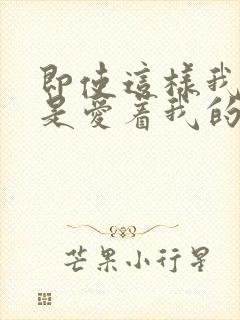 即使這樣我
是愛着我的
芒果小行星